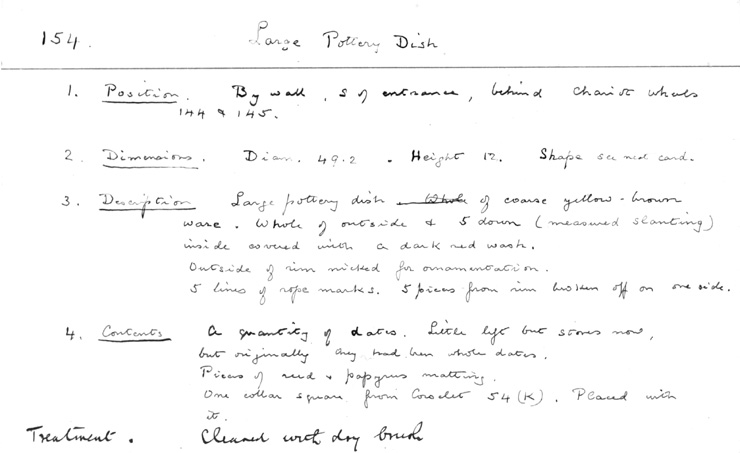 154. Large Pottery Dish
1. Position. By wall, S of entrance, behind chariot wheels
144 & 145.
2. Dimensions. Diam. 49.2. Height 12. Shape see red card.
3. Description Large pottery dish of coarse yellow-brown
ware. Whole of outside & 5 down (measured slanting)
inside covered with a dark red wash.
Outside of rim nicked for ornamentation.
5 lines of rope marks. 5 pieces from rim broken off on one side.
4. Contents A quantity of dates. Little left but stones now,
but originally they had been whole dates.
Pieces of reed & papyrus matting.
One collar square from Corselet 54 (K). Placed with
it.
Treatment. Cleaned with dry brush